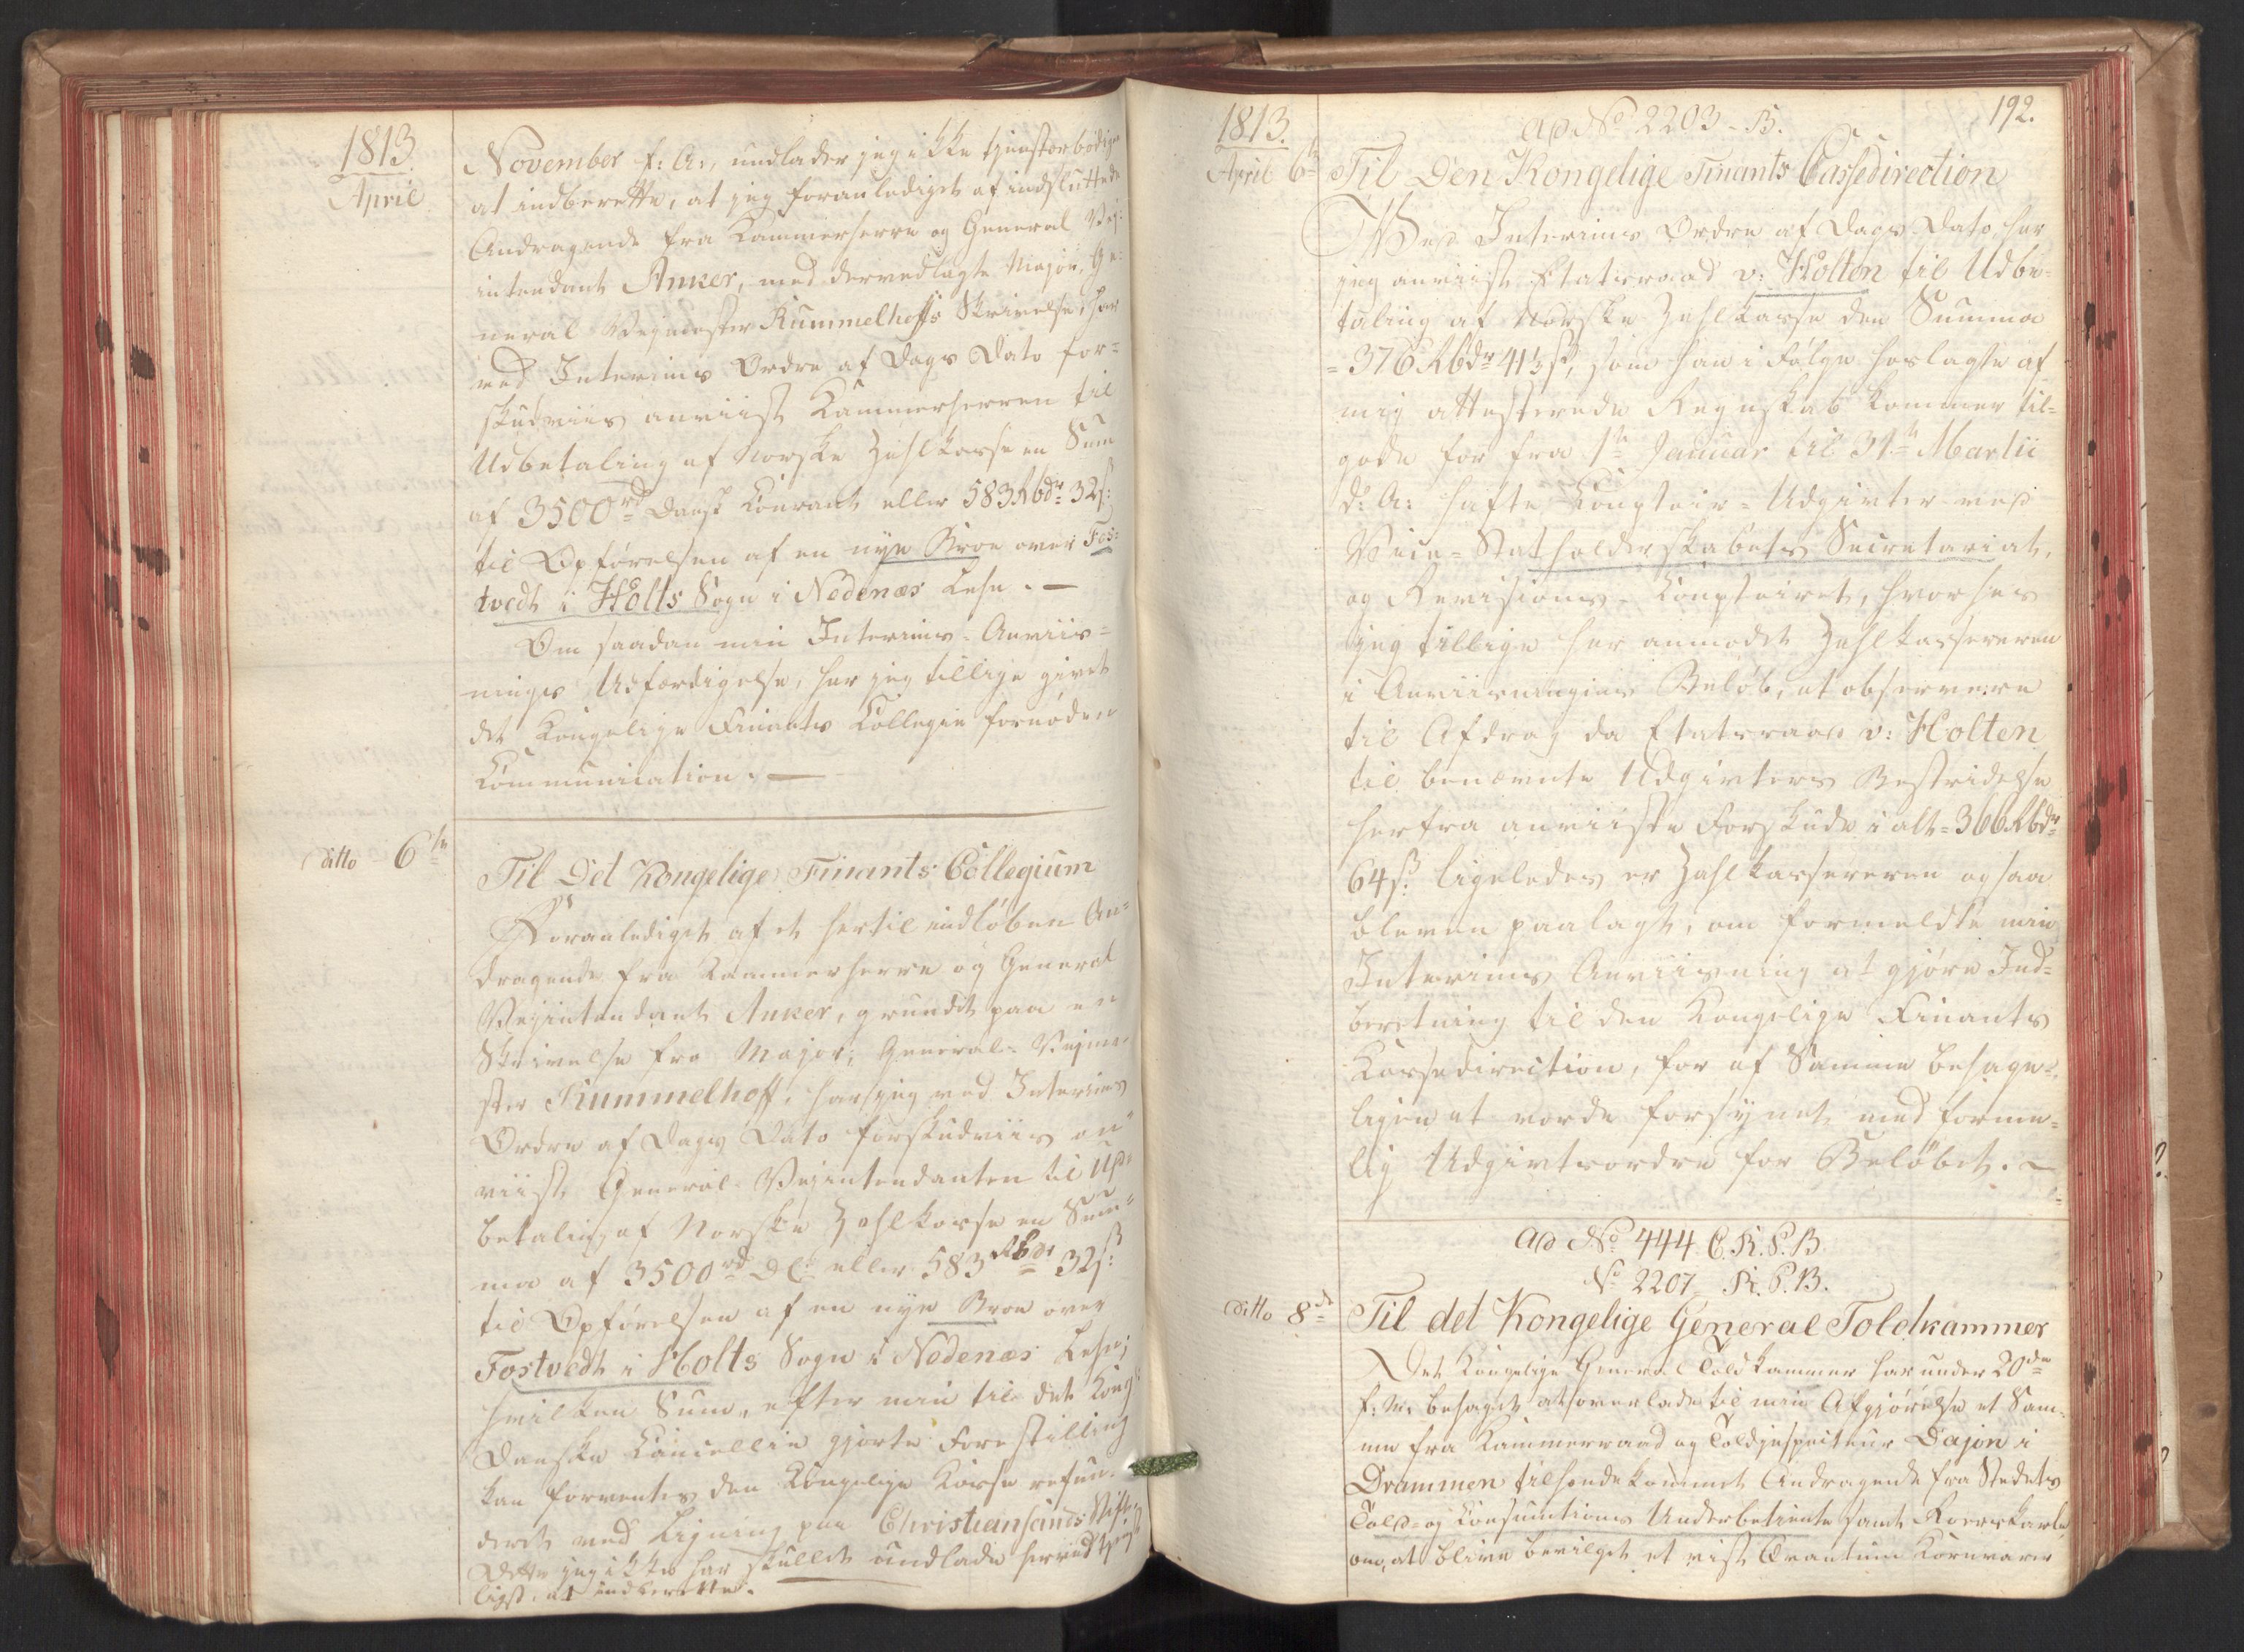 1813
April
November f: A:, undlader jeg ikke tjenstærbødigst
at indberette, at jeg foranlediget af indsluttede
Andragende fra Kammerherre og General Vej:
intendant Anker, med dervedlagte Major, Ge:
neral Vejmester Rummelhoffs Skrivelse, har
ved Interims Ordre af Dags Dato for=
skudviis anviist Kammerherren til
Udbetaling af Norske Zahlkasse en Sum
af 3500rd Dansk Courant eller 583 Rbdr 32s:
til Opførelsen af en nye Broe over Fos:
tvedt i Holts Sogn i Nedenæs Lehn. —
Om saadan min Interims-Anviis=
nings Udfærdigelse, har jeg tillige givet
det Kongelige Finants Collegie fornøden
Communication. —
ditto 6te
Til Det Kongelige Finants Collegium
Foranlediget af et hertil indløben An=
dragende fra Kammerherre og General
Vejintendant Anker, grundet paa en
Skrivelse fra Major, General-Vejme=
ster Rummelhoff, har jeg ved Interims
Ordre af Dags Dato forskudviis an=
viist General-Vejintendanten til Ud=
betaling af Norske Zahlkasse en Sum=
ma af 3500rd DC eller 583 Rbdr 32s:
til Opførelsen af en nye Broe over
Fostvedt i Holts Sogn i Nedenæs Lehn;
hvilken Sum, efter min til det Kongl:
Danske Cancellie gjorte Forestilling
kan forventes den Kongelige Kasse refun=
deret ved Ligning paa Christiansands Stift.
Dette jeg ikke har skullet undlade herved tjenst
ligst at indberette.
1813.
April 6te
192.
ad No 2203 - B.
Til Den Kongelige Finants Cassedirection
Ved Interims Ordre af Dags Dato har
jeg anviist Etatsraad v: Holten til Udbe=
taling af Norske Zahlkasse den Summa
= 376 Rbdr 41⅓ s, som han i Følge hoslagte af
mig attesterede Regnskab kommer til=
gode for fra 1te Januar til 31te Martii
d: A: hafte Comptoir-Udgivter ved
Vice-Statholderskabets Secretariat,
og Revisions-Comptoiret, hvorhos
jeg tillige har anmodet Zahlkassereren
i Anviisningens Beløb, at observere
til Afdrag de Etatsraad v: Holten
til benævnte Udgivters Bestridelse
herfra anviiste Forskude i alt = 366 Rbdr
64s: ligeledes er Zahlkassereren ogsaa
bleven paalagt, om formeldte min
Interims Anviisning at gjøre Ind=
beretning til den Kongelige Finants
Kassedirection, for af Samme behage=
ligen at vorde forsynet med forme=
lig Udgivtsordre for Beløbet. —
ad No 444 C. R. P. B
No 2207 R. P. B.
ditto 8de
Til det Kongelige General Toldkammer
Det Kongelige General Toldkammer har under 20de
f: M: behaget at overlade til min Afgjørelse et Sam=
me fra Kammerraad og Toldinspecteur Dajon i
Drammen tilhændekommet Andragende fra Stedets
Told- og Consumtions Underbetiente samt Roerskarle
om, at blive bevilget et vist Qvantum Kornvarer